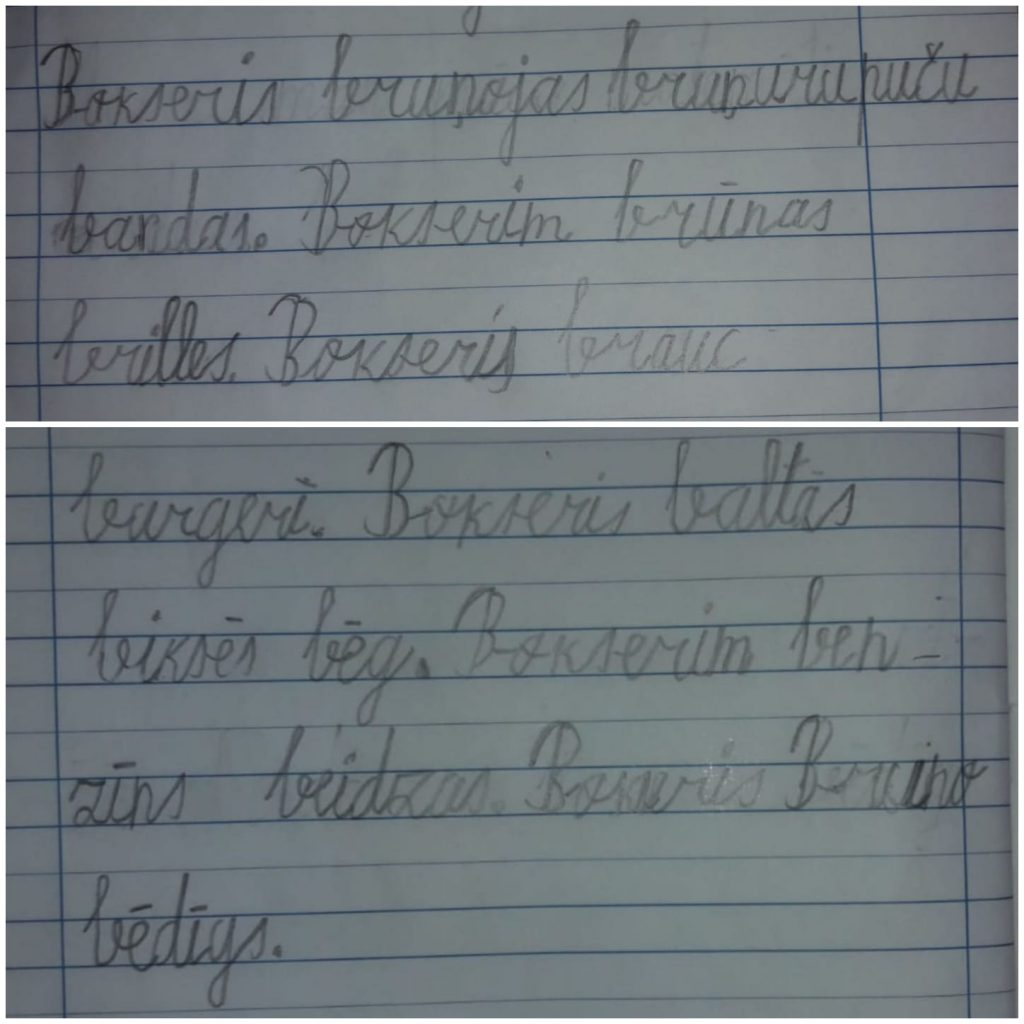 Bokseris bruņojas bruņurupuču
bandas. Bokserim brūnas
brilles. Bokseris brauc
burgerī. Bokseris baltās
biksēs bēg. Bokserim ben-
zīns beidzas. Bokseris Bruno
bēdīgs.